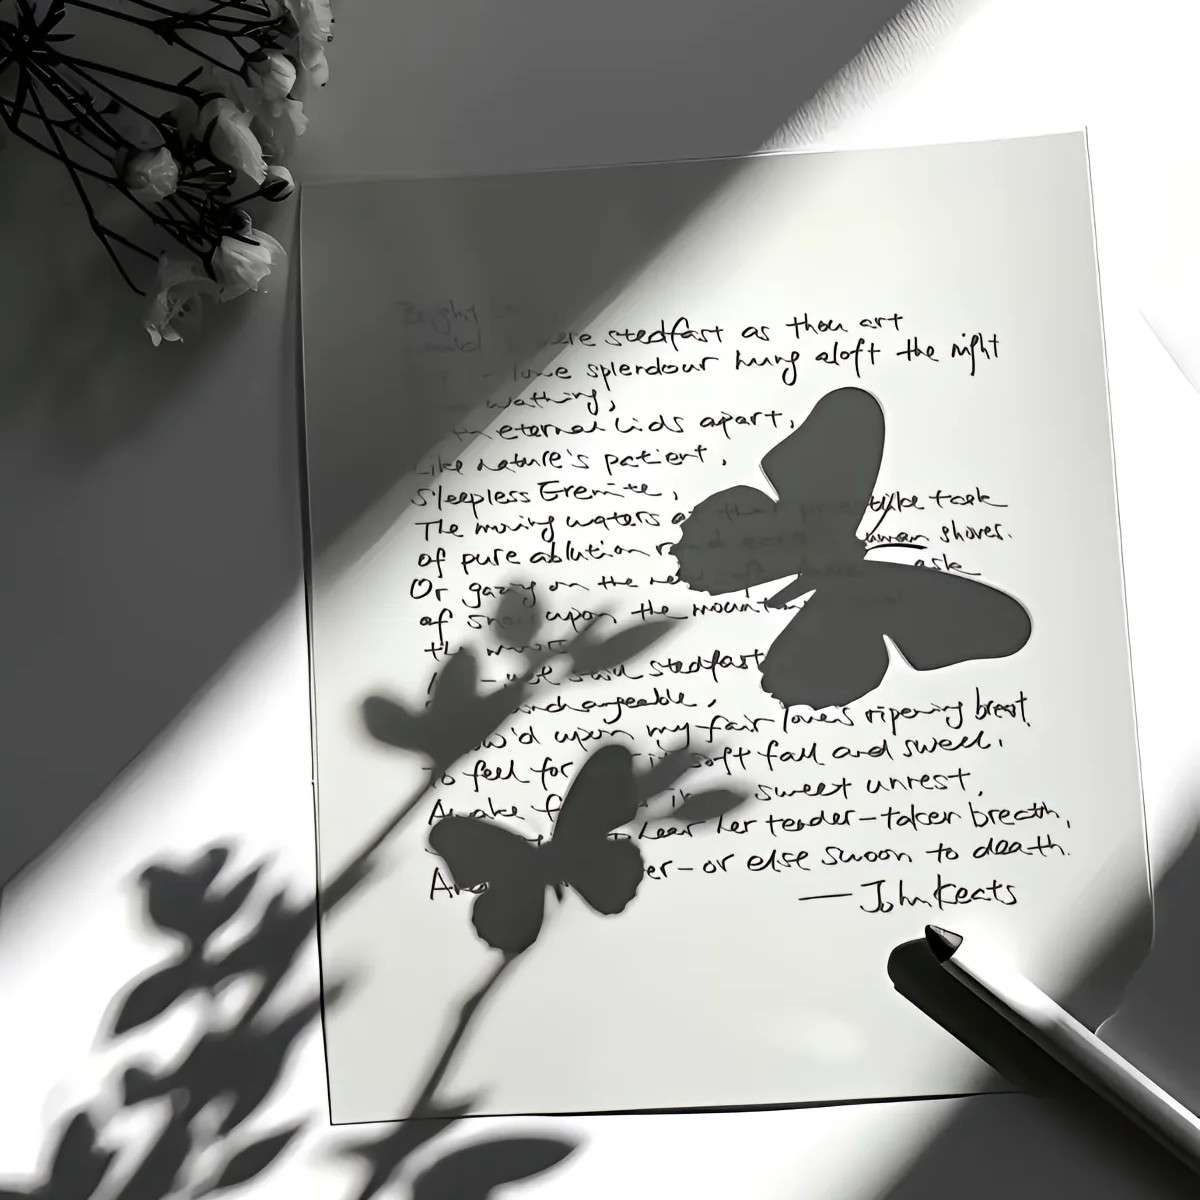 Bright
were stedfast as thou art
lone splendour hung aloft the night
wathing,
eternal lids apart,
Like nature's patient,
Sleepless Eremite,
The moving waters at their priestlike task
of pure ablution round human shores.
Or gazing on the new soft mask
of snow upon the mountains
the moors
No - yet still stedfast
unchangeable,
upon my fair love's ripening breast
To feel for its soft fall and swell,
Awake sweet unrest,
hear her tender-taken breath,
And ever-or else swoon to death.
— John Keats